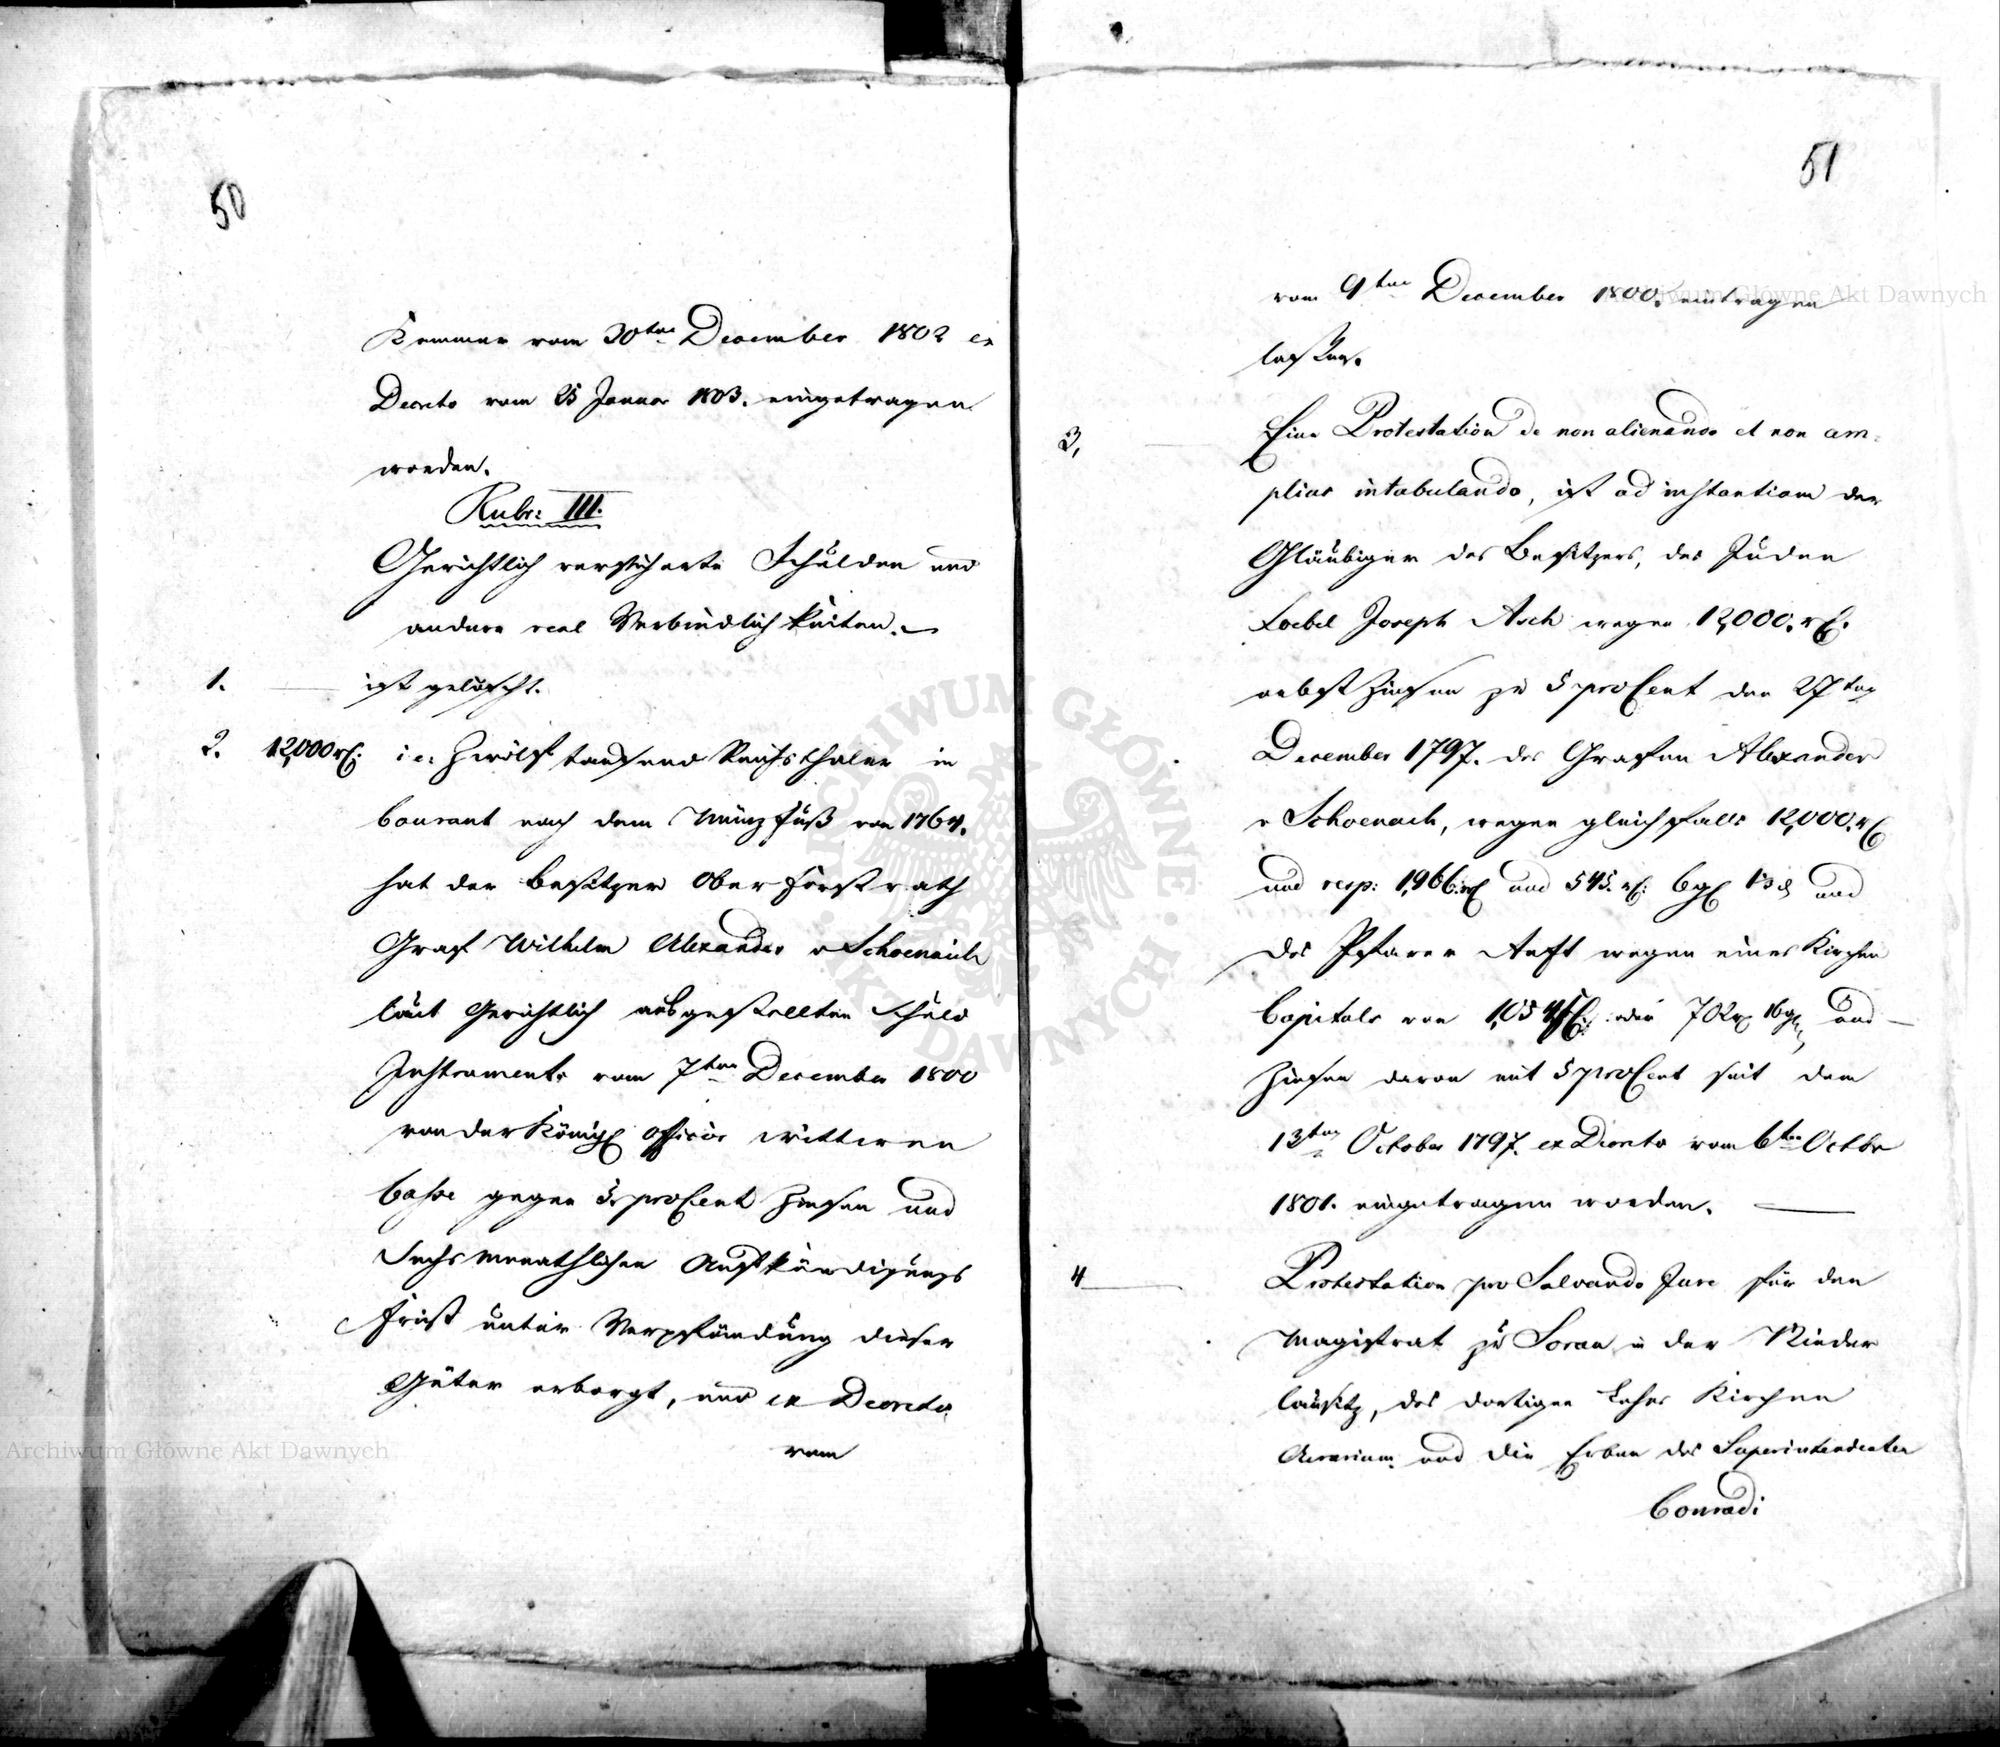 50
Kammer vom 30ten December 1802 ex
Decreto vom 25 Januar 1803. eingetragen
worden.
Rubr: III.
Gerichtlich versicherte Schulden und
andere real Verbindlichkeiten.
1. ist gelöscht.
2. 12,000 rℓ: i.e. Zwölf tausend Reichsthaler in
Courant nach dem Münzfuß von 1764.
hat der Besitzer Ober Forstrath
Graf Wilhelm Alexander v Schoenaich
laut Gerichtlich ausgestellten Schuld
Instruments vom 7ten December 1800
von der Königl Officier Wittwen
Casse gegen 5 pro Cent Zinsen und
Sechs monathlichen Aufkündigungs
Frist unter Verpfändung dieser
Güter erborgt, und ex Decreto
vom
51
vom 9ten December 1800. eintragen
lassen.
3, Eine Protestation de non alienando et non am-
plius intabulando, ist ad instantiam der
Gläubiger des Besitzers, des Juden
Loebel Joseph Asch wegen 12,000. rℓ.
nebst Zinsen zu 5 pro Cent den 27ten
December 1797. des Grafen Alexander
v Schoenaich, wegen gleichfalls 12,000. rℓ
und resp: 1,966. rℓ und 545. rℓ: 6 gℓ und
des Pfarrer wegen eines Kirchen
Capitals von oder und
Zinsen davon mit 5 pro Cent seit dem
13ten October 1797. ex Decreto vom 6ten Octbr
1801. eingetragen worden.
4 Protestation pro Salvando Jure für den
Magistrat zu Sorau in der Nieder
lausitz, das dortigen Kirchen
Aerarium und die Erben des Superintendenten
Conradi
Archiwum Główne Akt Dawnych
Archiwum Główne Akt Dawnych
ARCHIWUM GŁÓWNE AKT DAWNYCH